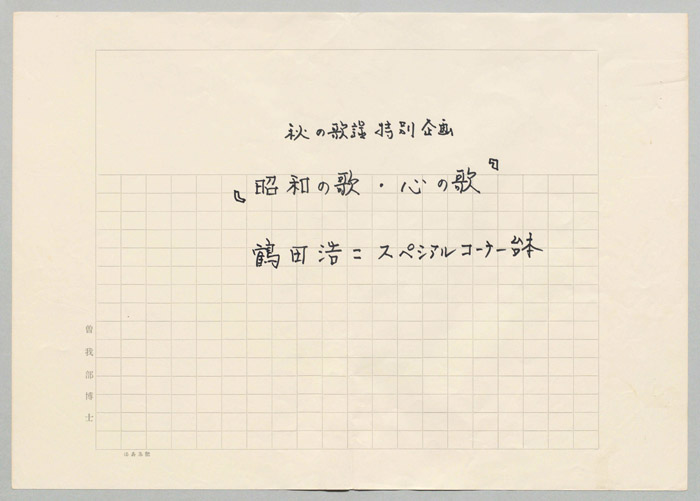 秋の歌謡特別企画
『昭和の歌・心の歌』
鶴田浩二 スペシャルコーナー台本
曽我部博士